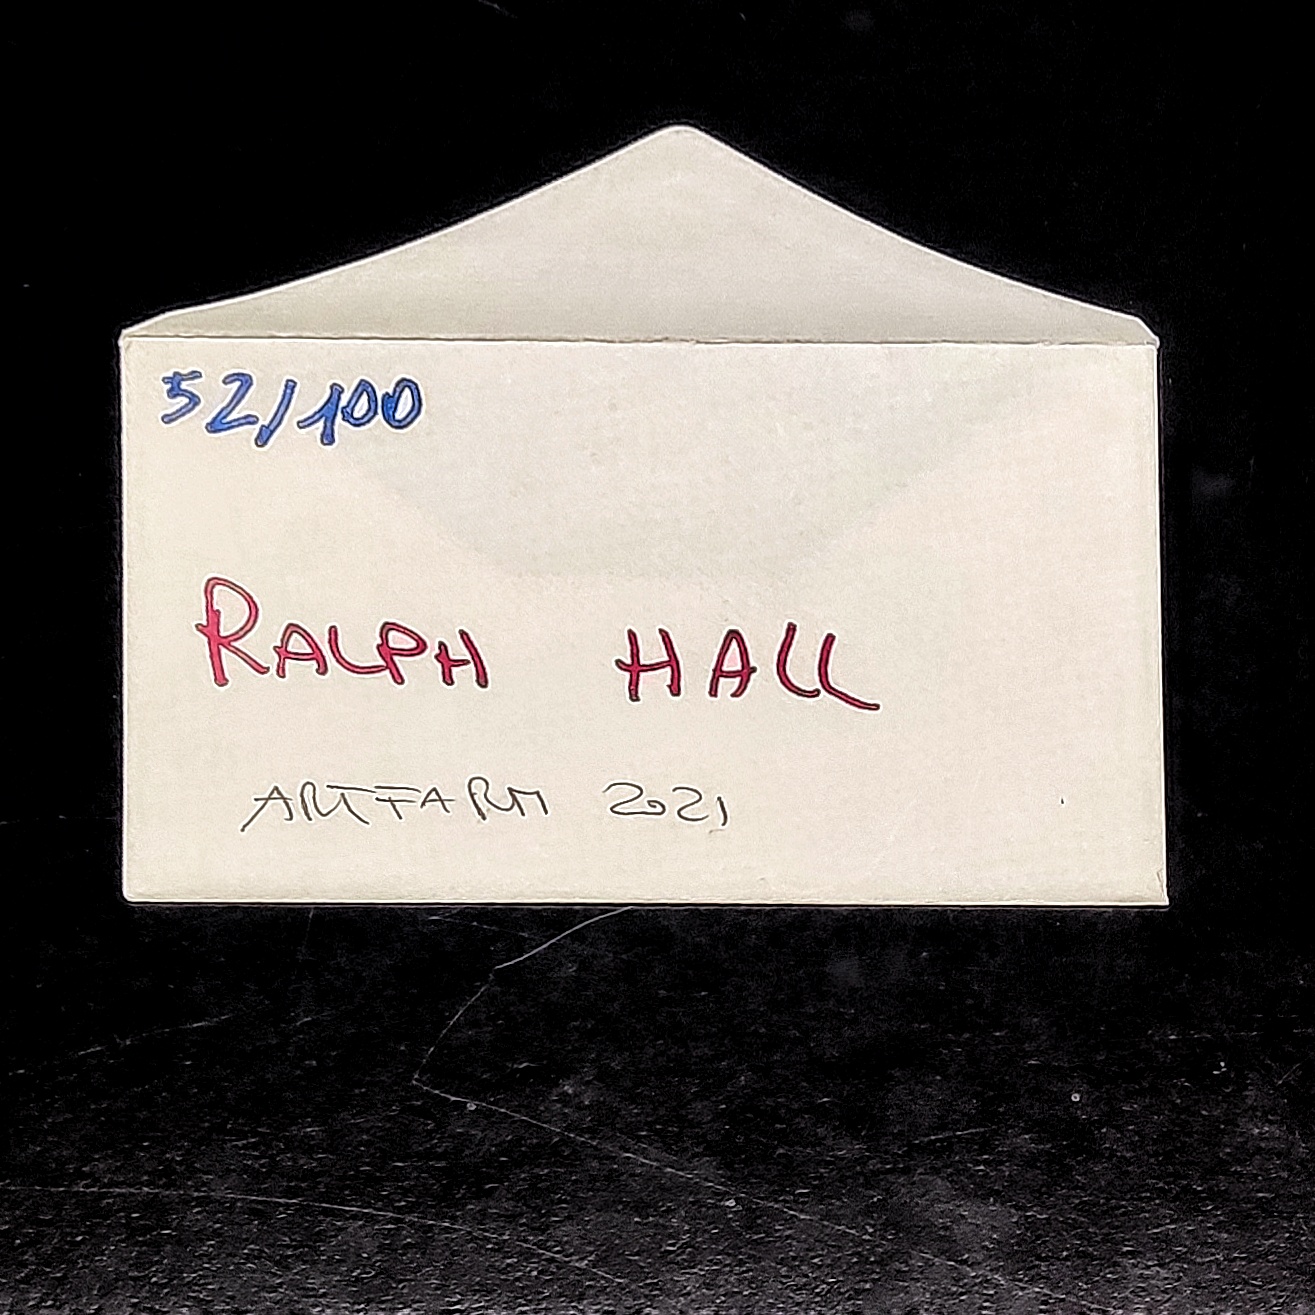 52/100
RALPH HALL
ARTFARM 2021